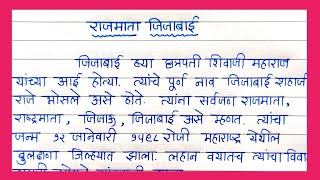 राजमाता जिजाबाई
जिजाबाई ह्या छत्रपती शिवाजी महाराज
यांच्या आई होत्या. त्यांचे पूर्ण नाव जिजाबाई शहाजी
राजे भोसले असे होते. त्यांना सर्वजण राजमाता,
राष्ट्रमाता, जिजाऊ, जिजाबाई असे म्हणत. त्यांचा
जन्म १२ जानेवारी १५९८ रोजी महाराष्ट्र येथील
बुलढाणा जिल्ह्यात झाला. लहान वयातच त्यांचा विवा